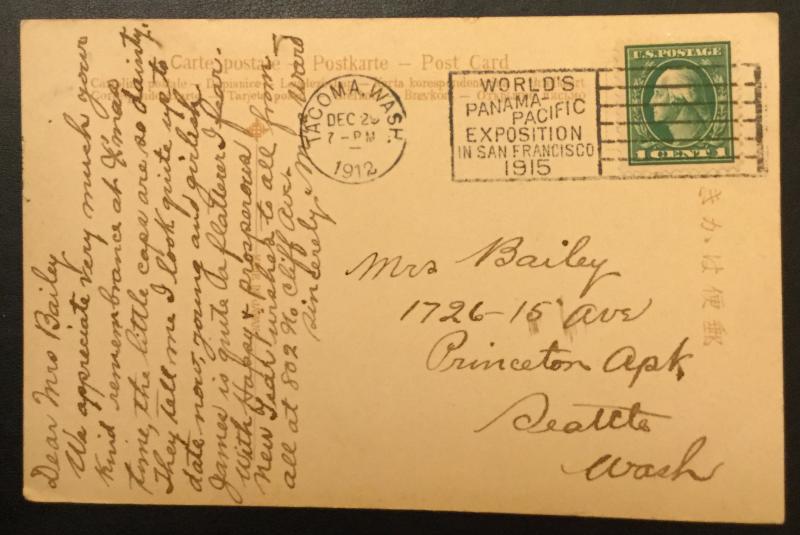 Carte postale - Postkarte - Post Card
TACOMA, WASH.
DEC 2
7-PM
1912
WORLD'S
PANAMA-
PACIFIC
EXPOSITION
IN SAN FRANCISCO
1915
U.S. POSTAGE
1 CENT 1
きかは便郵
Mrs Bailey
1726-15 Ave
Princeton Apt.
Seattle
Wash
Dear Mrs Bailey
We appreciate very much your
kind remembrance at X'mas
time, the little caps are so dainty.
They tell me I look quite up to
date now, young and girlish
James is quite a flatterer I fear.
With Happy & Prosperous
New Year wishes to all from
all at 802 No Cliff Ave.
Sincerely, Ward